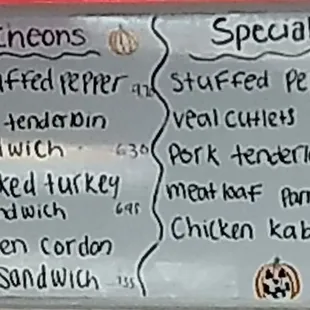 cheons
uffed pepper
tenderloin
dwich 630
ked turkey
ndwich 695
en cordon
Sandwich
Special
Stuffed Pe
veal cutlets
Pork tenderl
meatloaf Parm
Chicken kab